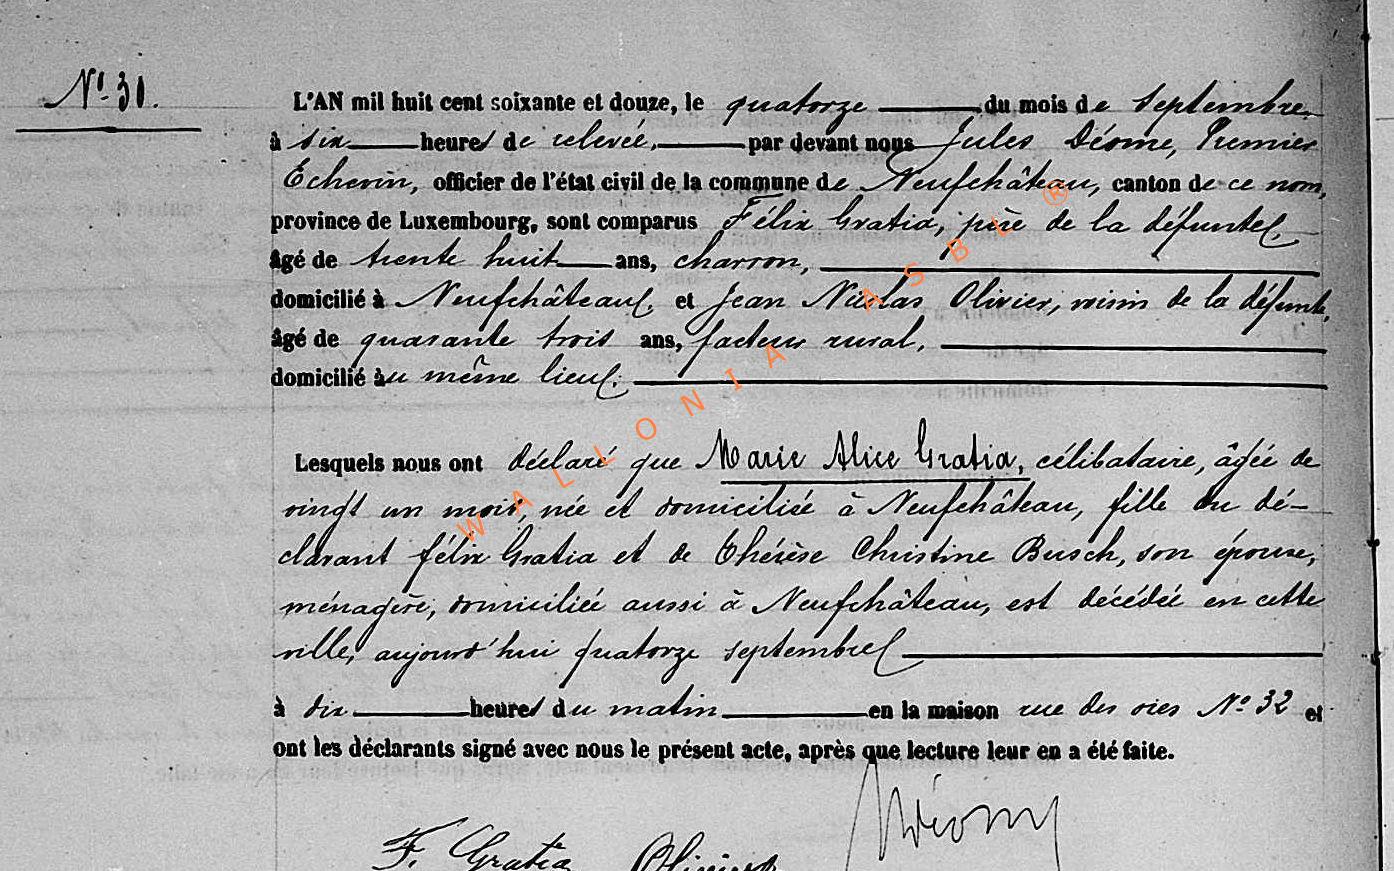 Nº 30.
L'AN mil huit cent soixante et douze, le quatorze du mois de septembre
à six heures de relevée, par devant nous Jules Déome, Premier
Echevin, officier de l'état civil de la commune de Neufchâteau, canton de ce nom,
province de Luxembourg, sont comparus Félix Gratia, père de la défunte,
âgé de trente huit ans, charron,
domicilié à Neufchâteau, et Jean Nicolas Olivier, voisin de la défunte,
âgé de quarante trois ans, facteur rural,
domicilié au même lieu.
Lesquels nous ont déclaré que Marie Alice Gratia, célibataire, âgée de
vingt un mois, née et domiciliée à Neufchâteau, fille du dé-
clarant félix Gratia et de Thérèse Christine Busch, son épouse,
ménagère, domiciliée aussi à Neufchâteau, est décédée en cette
ville, aujourd'hui quatorze septembre
à dix heures du matin en la maison rue des oies Nº 32 et
ont les déclarants signé avec nous le présent acte, après que lecture leur en a été faite.
F. Gratia Olivier
WALLONIA ASBL ®